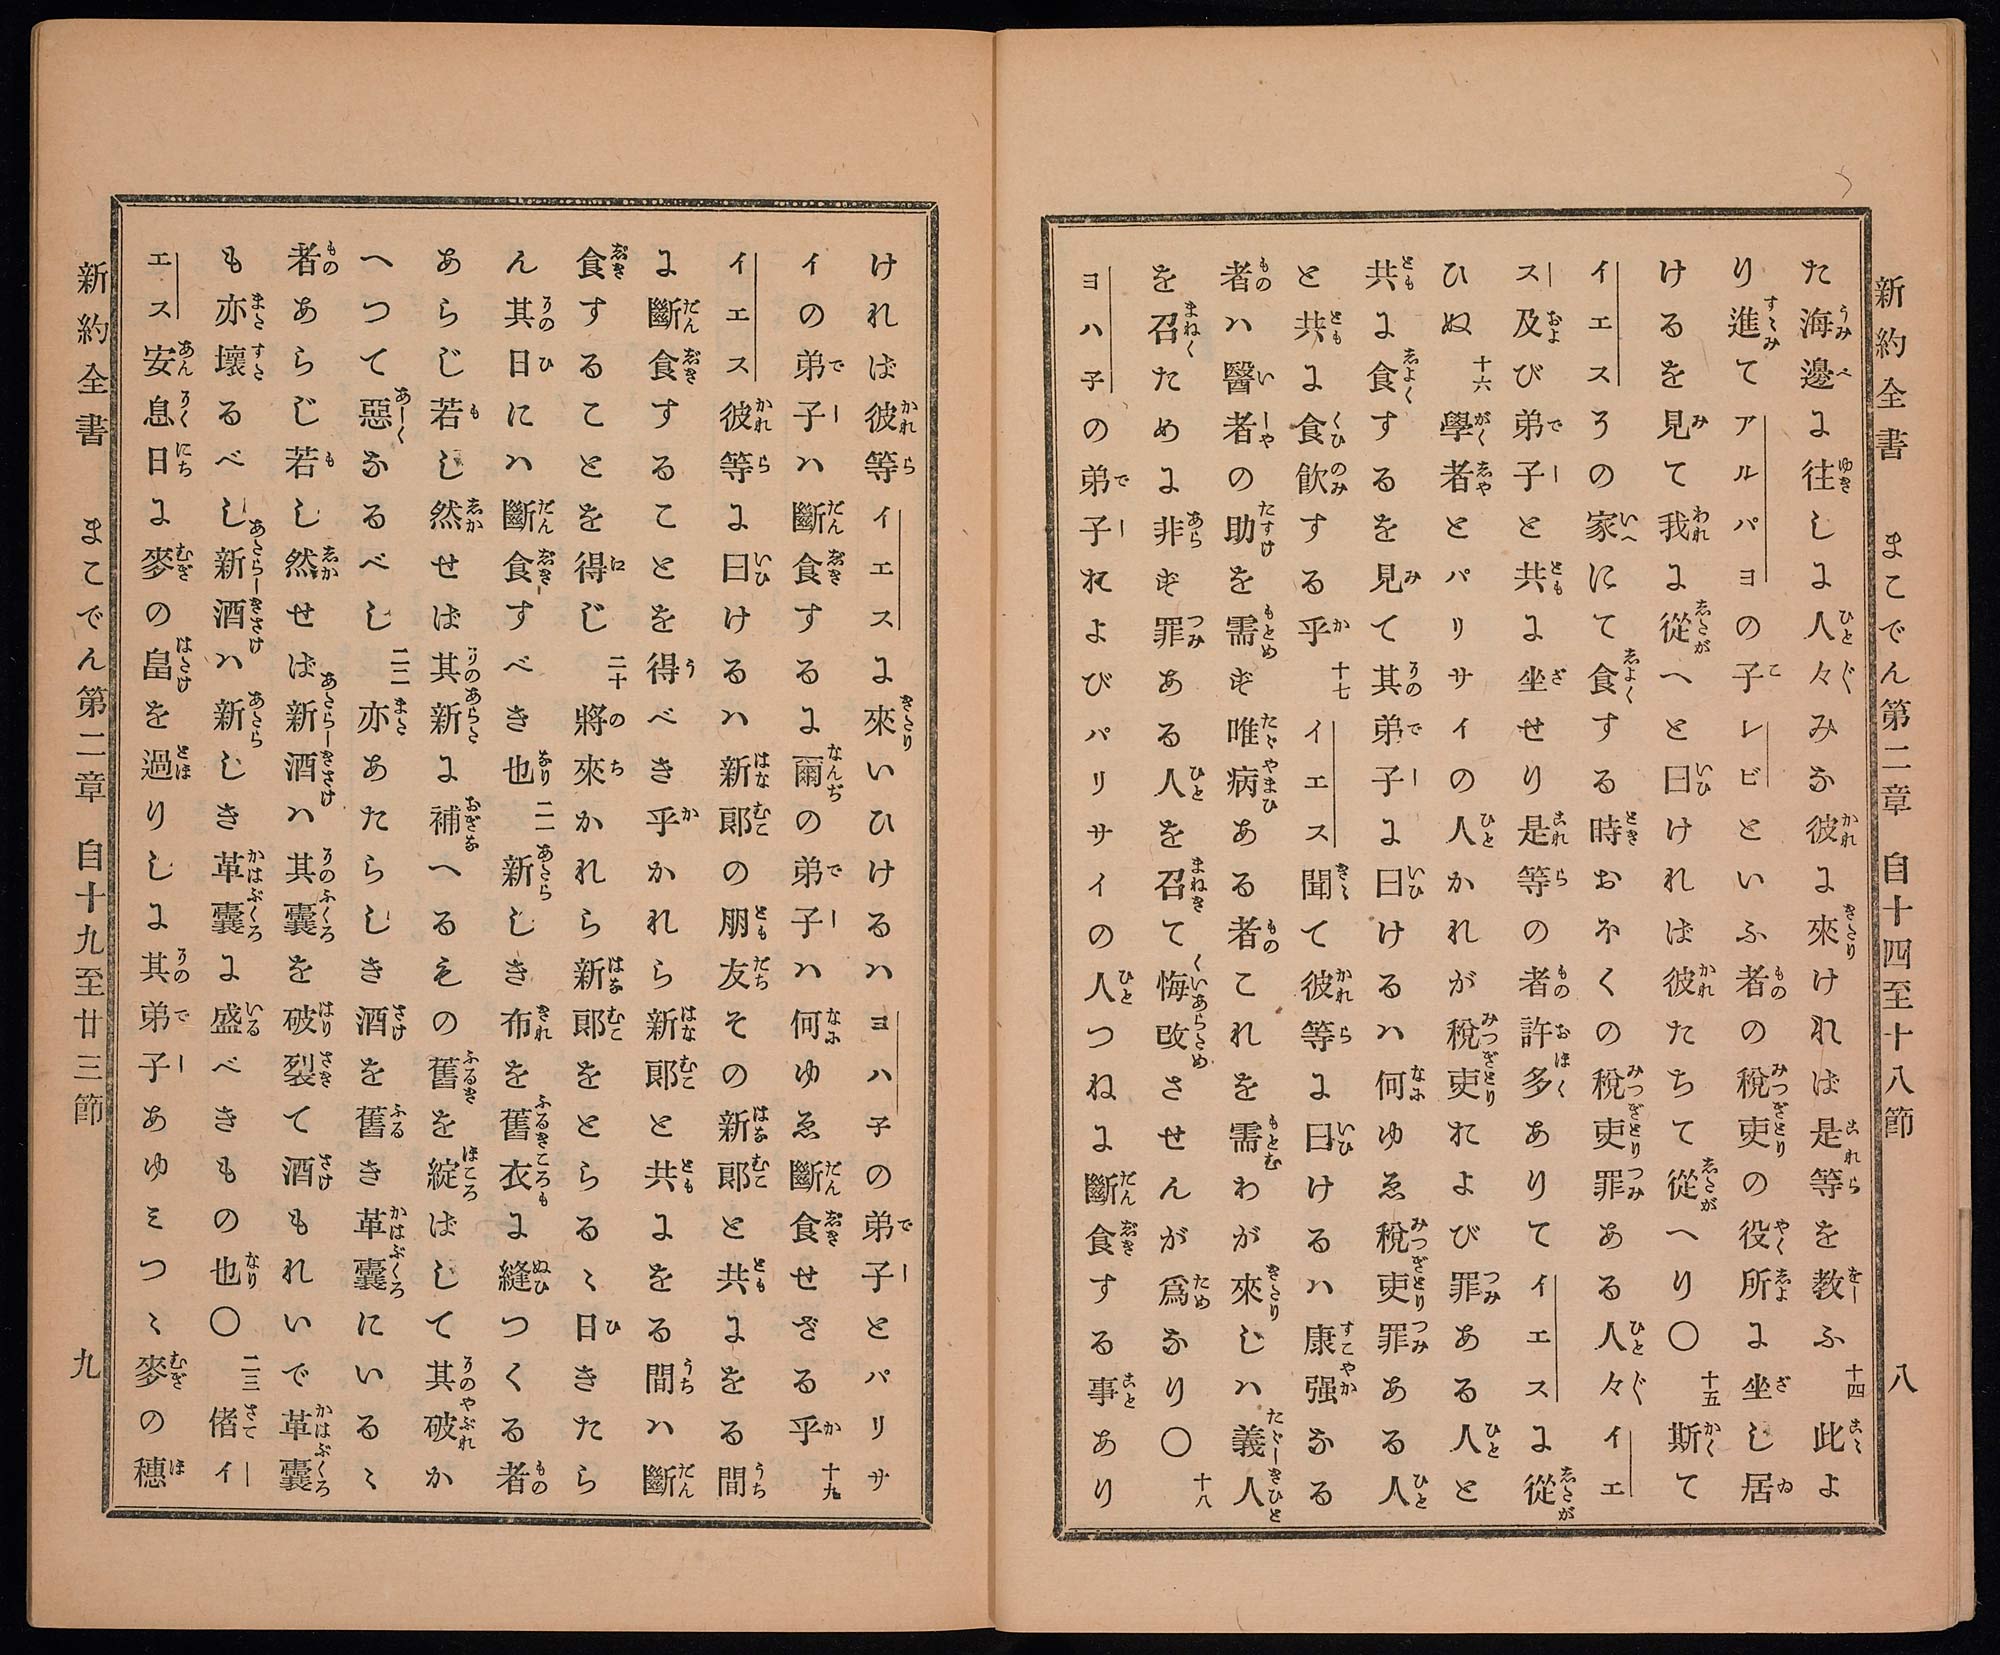 新約全書　まこでん第二章　自十四至十八節　八
た海邊に往しに人々みな彼に來ければ是等を教ふ 十四 此よ
り進てアルパヨの子レビといふ者の稅吏の役所に坐し居
けるを見て我に從へと曰ければ彼たちて從へり〇 十五 斯て
イエスその家にて食する時おほくの稅吏罪ある人々イエ
ス及び弟子と共に坐せり是等の者許多ありてイエスに從
ひぬ 十六 學者とパリサイの人かれが稅吏および罪ある人と
共に食するを見て其弟子に曰けるハ何ゆゑ稅吏罪ある人
と共に食飮する乎 十七 イエス聞て彼等に曰けるハ康强なる
者ハ醫者の助を需ず唯病ある者これを需わが來しハ義人
を召ために非ず罪ある人を召て悔改させんが爲なり〇 十八
ヨハ子の弟子およびパリサイの人つねに斷食する事あり
けれは彼等イエスに來いひけるハヨハ子の弟子とパリサ
イの弟子ハ斷食するに爾の弟子ハ何ゆゑ斷食せざる乎 十九
イエス彼等に曰けるハ新郞の朋友その新郞と共にをる間
に斷食することを得べき乎かれら新郞と共にをる間ハ斷
食することを得じ 二十 將來かれら新郞をとらるゝ日きたら
ん其日にハ斷食すべき也 二一 新しき布を舊衣に縫つくる者
あらじ若し然せば其新に補へるもの舊を綻ばして其破か
へつて惡なるべし 二二 亦あたらしき酒を舊き革囊にいるゝ
者あらじ若し然せば新酒ハ其囊を破裂て酒もれいで革囊
も亦壞るべし新酒ハ新しき革囊に盛べきもの也〇 二三 偖イ
エス安息日に麥の畠を過りしに其弟子あゆミつゝ麥の穗
新約全書　まこでん第二章　自十九至廿三節　九